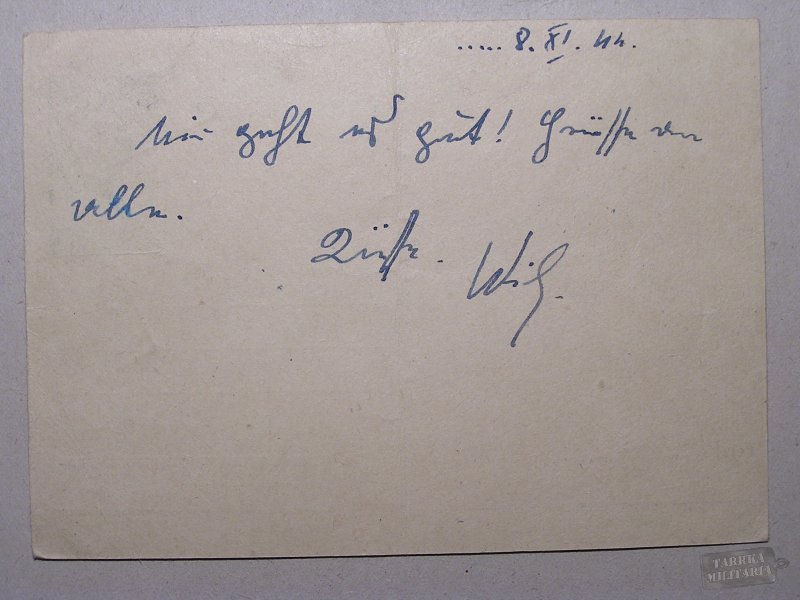 ..... 8. XI. 44.
Mir geht es gut! Grüsse an
alle.
Küsse. Wil
TARRKA
MILITARIA